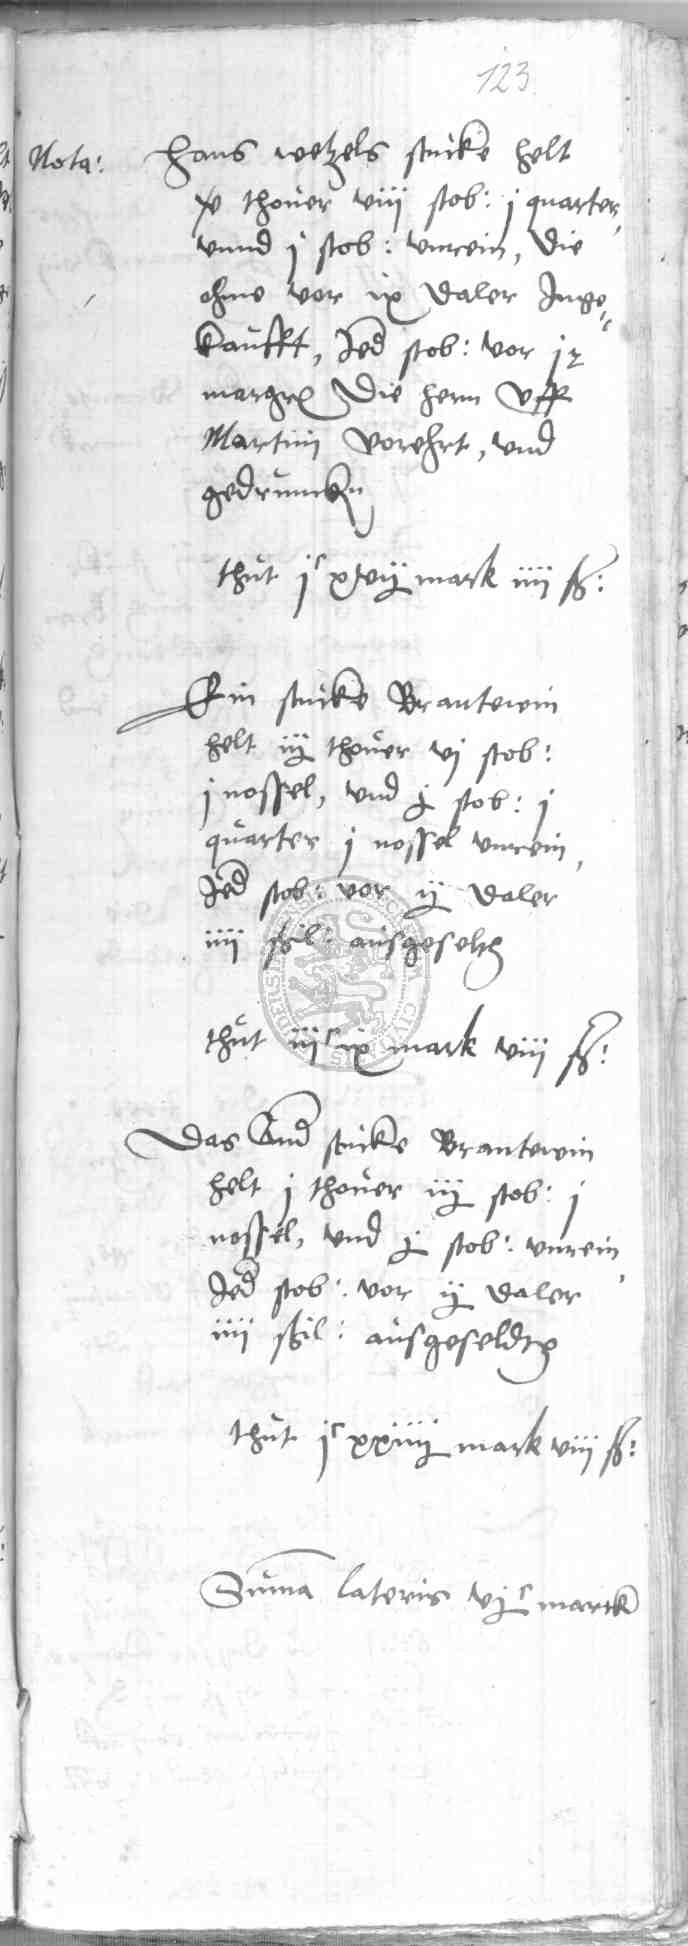 123
Nota: Hans wetzels stucke helt
xv thover viii stob: j quarter,
vnnd j stob: vnrein, die
ohme vor ix daler Inge=
kaufft, Jed stob: vor j
margr Die hern vff
Martini vorehrt, vnd
gedruncken
thut jc xvij mark iiii ß:
Ein stucke Brantewin
helt iij thover vj stob:
j nossel, vnd j stob: j
quarter j nossel vnrein,
Jed stob: vor ij daler
iiii ßil: ausgesetzt
thut iijc ix mark viii ß:
Das And stucke Brantewin
helt j thover iij stob: j
nossel, vnd j stob: vnrein,
Jed stob: vor ij daler
iiii ßil: ausgeseldt
thut jc xxiiij mark viii ß:
Suma lateris vjc marck